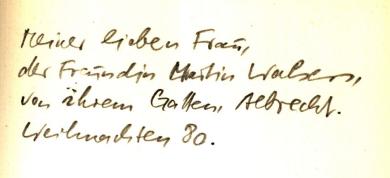 Meiner lieben Frau,
der Freundin Martin Walsers,
von ihrem Gatten, Albrecht.
Weihnachten 80.